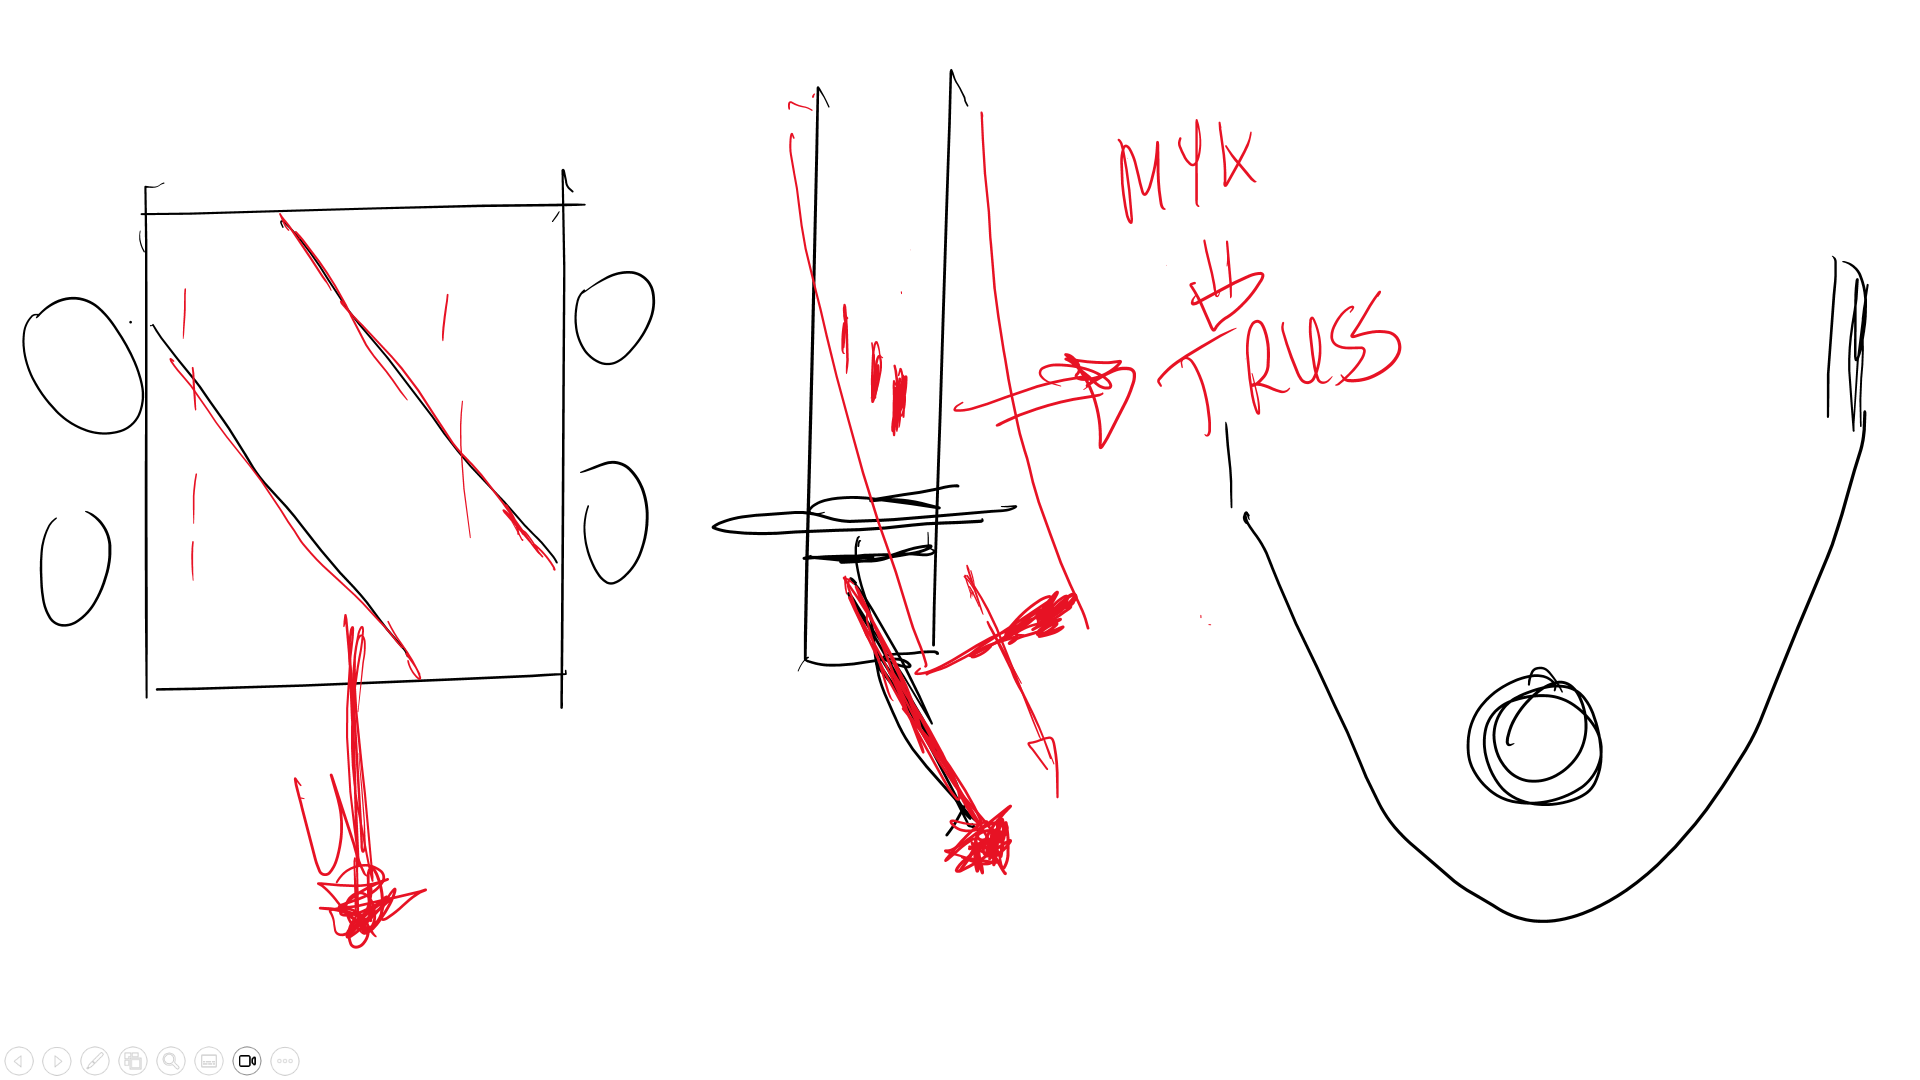 MYX
TRUSS